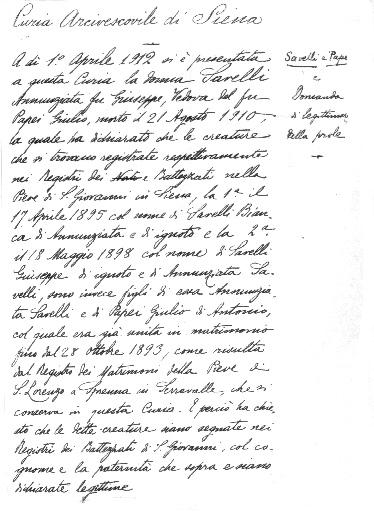 Curia Arcivescovile di Siena
A dì 1º Aprile 1912 si è presentata
a questa Curia la Donna Savelli
Annunziata fu Giuseppe, Vedova del fu
Papei Giulio, morto il 21 Agosto 1910,
la quale ha dichiarato che le creature
che si trovano registrate rispettivamente
nei Registri dei Battezzati nella
Pieve di S. Giovanni in Siena, la 1ª il
17 Aprile 1895 col nome di Savelli Bian-
ca di Annunziata e di ignoto e la 2ª
il 18 Maggio 1898 col nome di Savelli
Giuseppe di ignoto e di Annunziata Sa-
velli, sono invece figli di essa Annunzia-
ta Savelli e di Papei Giulio di Antonio,
col quale era già unita in matrimonio
fino dal 28 Ottobre 1893, come risulta
dal Registro dei Matrimoni della Pieve di
S. Lorenzo a in Serravalle, che si
conserva in questa Curia. E perciò ha chie-
sto che le dette creature siano segnate nei
Registri dei Battezzati di S. Giovanni, col co-
gnome e la paternità che sopra e siano
dichiarate legittime
Savelli e Papei
Domanda
di legittimaz.
della prole